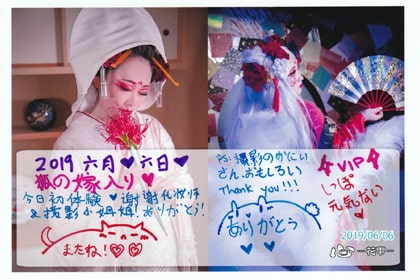 2019 六月♥六日♥
狐の嫁入り♥
今日初体験♥謝謝化妝師
&撮影小姐姐!ありがとう!
またね!♡♡
PS:撮影のおにい
さん、おもしろい
Thank you!!!
ありがとう
VIP
しっぽ
元気ない
♥
2019/06/06